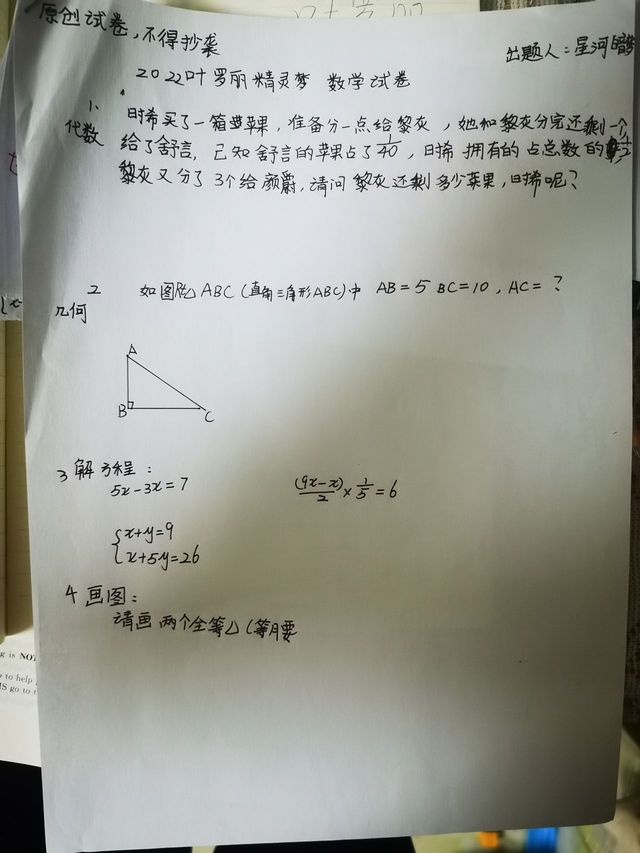 原创试卷,不得抄袭
出题人:星河
2022叶罗丽精灵梦 数学试卷
1、
代数
时希买了一箱苹果,准备分一点给黎灰,她和黎灰分完还剩一个,
给了舒言,已知舒言的苹果占了1/40,时希拥有的占总数的1/2
黎灰又分了3个给颜爵,请问黎灰还剩多少苹果,时希呢?
2
几何
如图 ABC(直角三角形ABC)中 AB=5 BC=10,AC=?
A
B
C
3 解方程:
5x-3x=7
(9x-x)/2×1/5=6
{x+y=9
{x+5y=26
4 画图:
请画两个全等△(等腰
g is NOT
to help
IS go to t